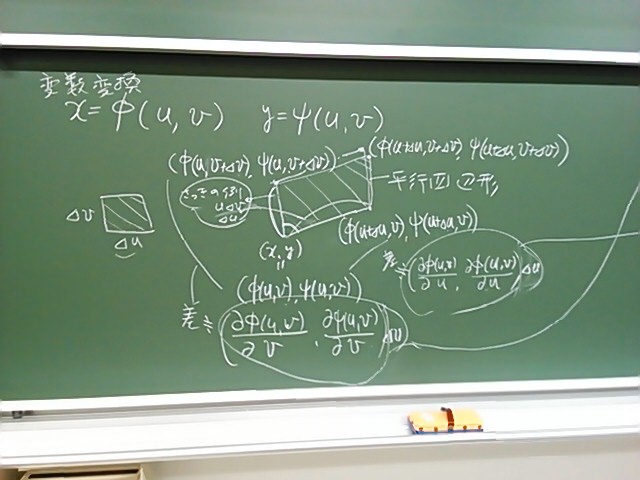 変数変換
x = φ(u, v) y = ψ(u, v)
(φ(u, v+Δv), ψ(u, v+Δv))
(φ(u+Δu, v+Δv), ψ(u+Δu, v+Δv))
平行四辺形
Δv
Δu
(x, y)
(φ(u+Δu, v), ψ(u+Δu, v))
=
(φ(u,v), ψ(u,v))
差≒ (∂φ(u,v)/∂u, ∂ψ(u,v)/∂u) Δu
差≒ (∂φ(u,v)/∂v, ∂ψ(u,v)/∂v) Δv